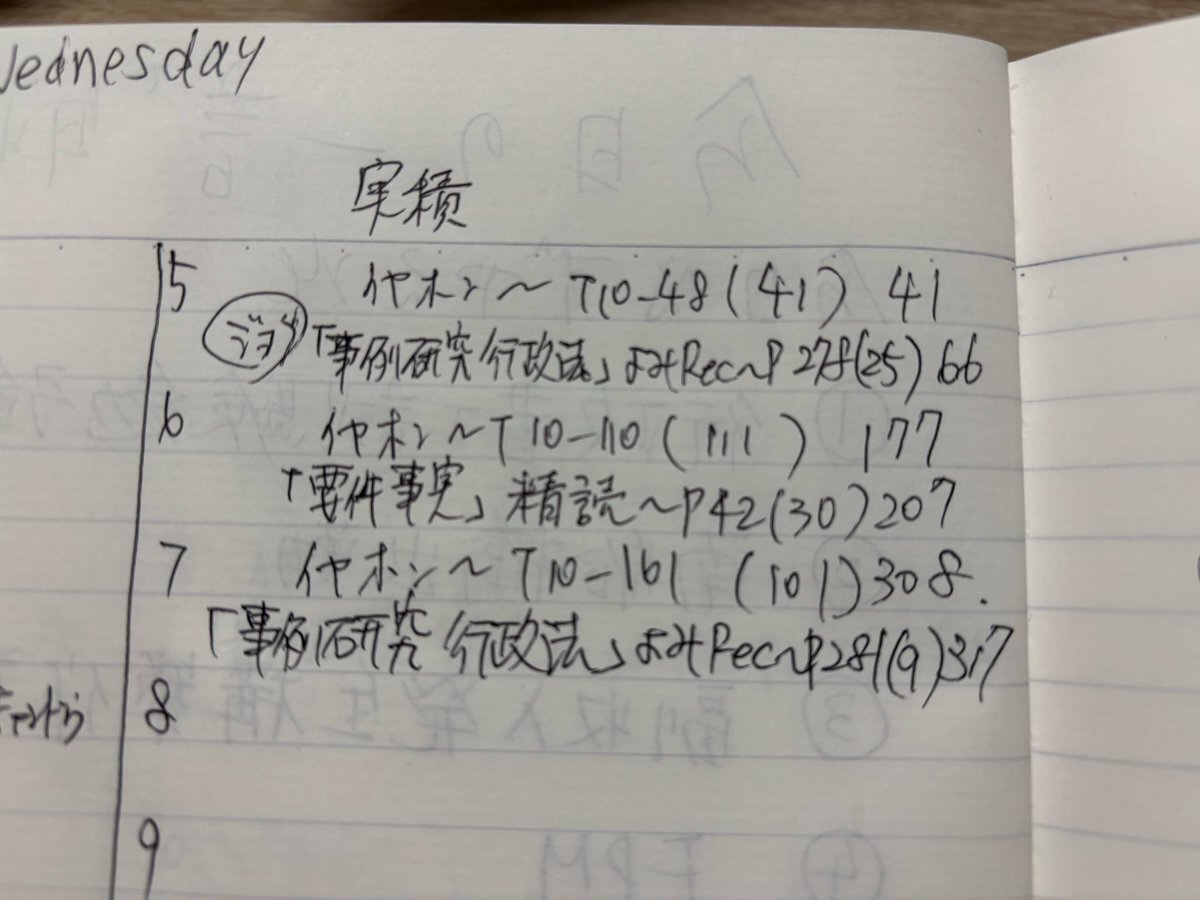 Wednesday
実績
5 イヤホン～T10-48(41) 41
ジョグ「事例研究行政法」よみRec～P278(25) 66
6 イヤホン～T10-110(111) 177
「要件事実」精読～P42(30)207
7 イヤホン～T10-161 (101)308.
「事例研究行政法」よみRec～P281(9)317
8
9